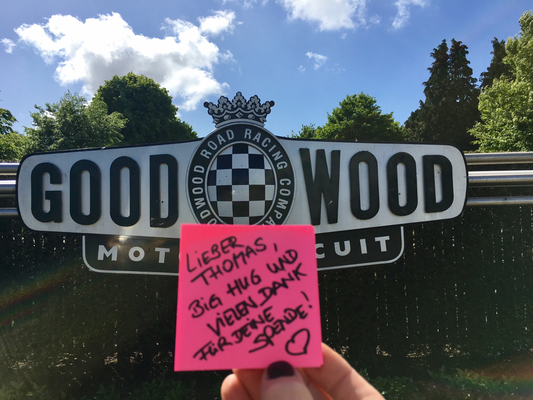 GOODWOOD
GOODWOOD ROAD RACING COMPANY
MOT CUIT
LIEBER
THOMAS,
BIG HUG UND
VIELEN DANK
FÜR DEINE
SPENDE! ♡